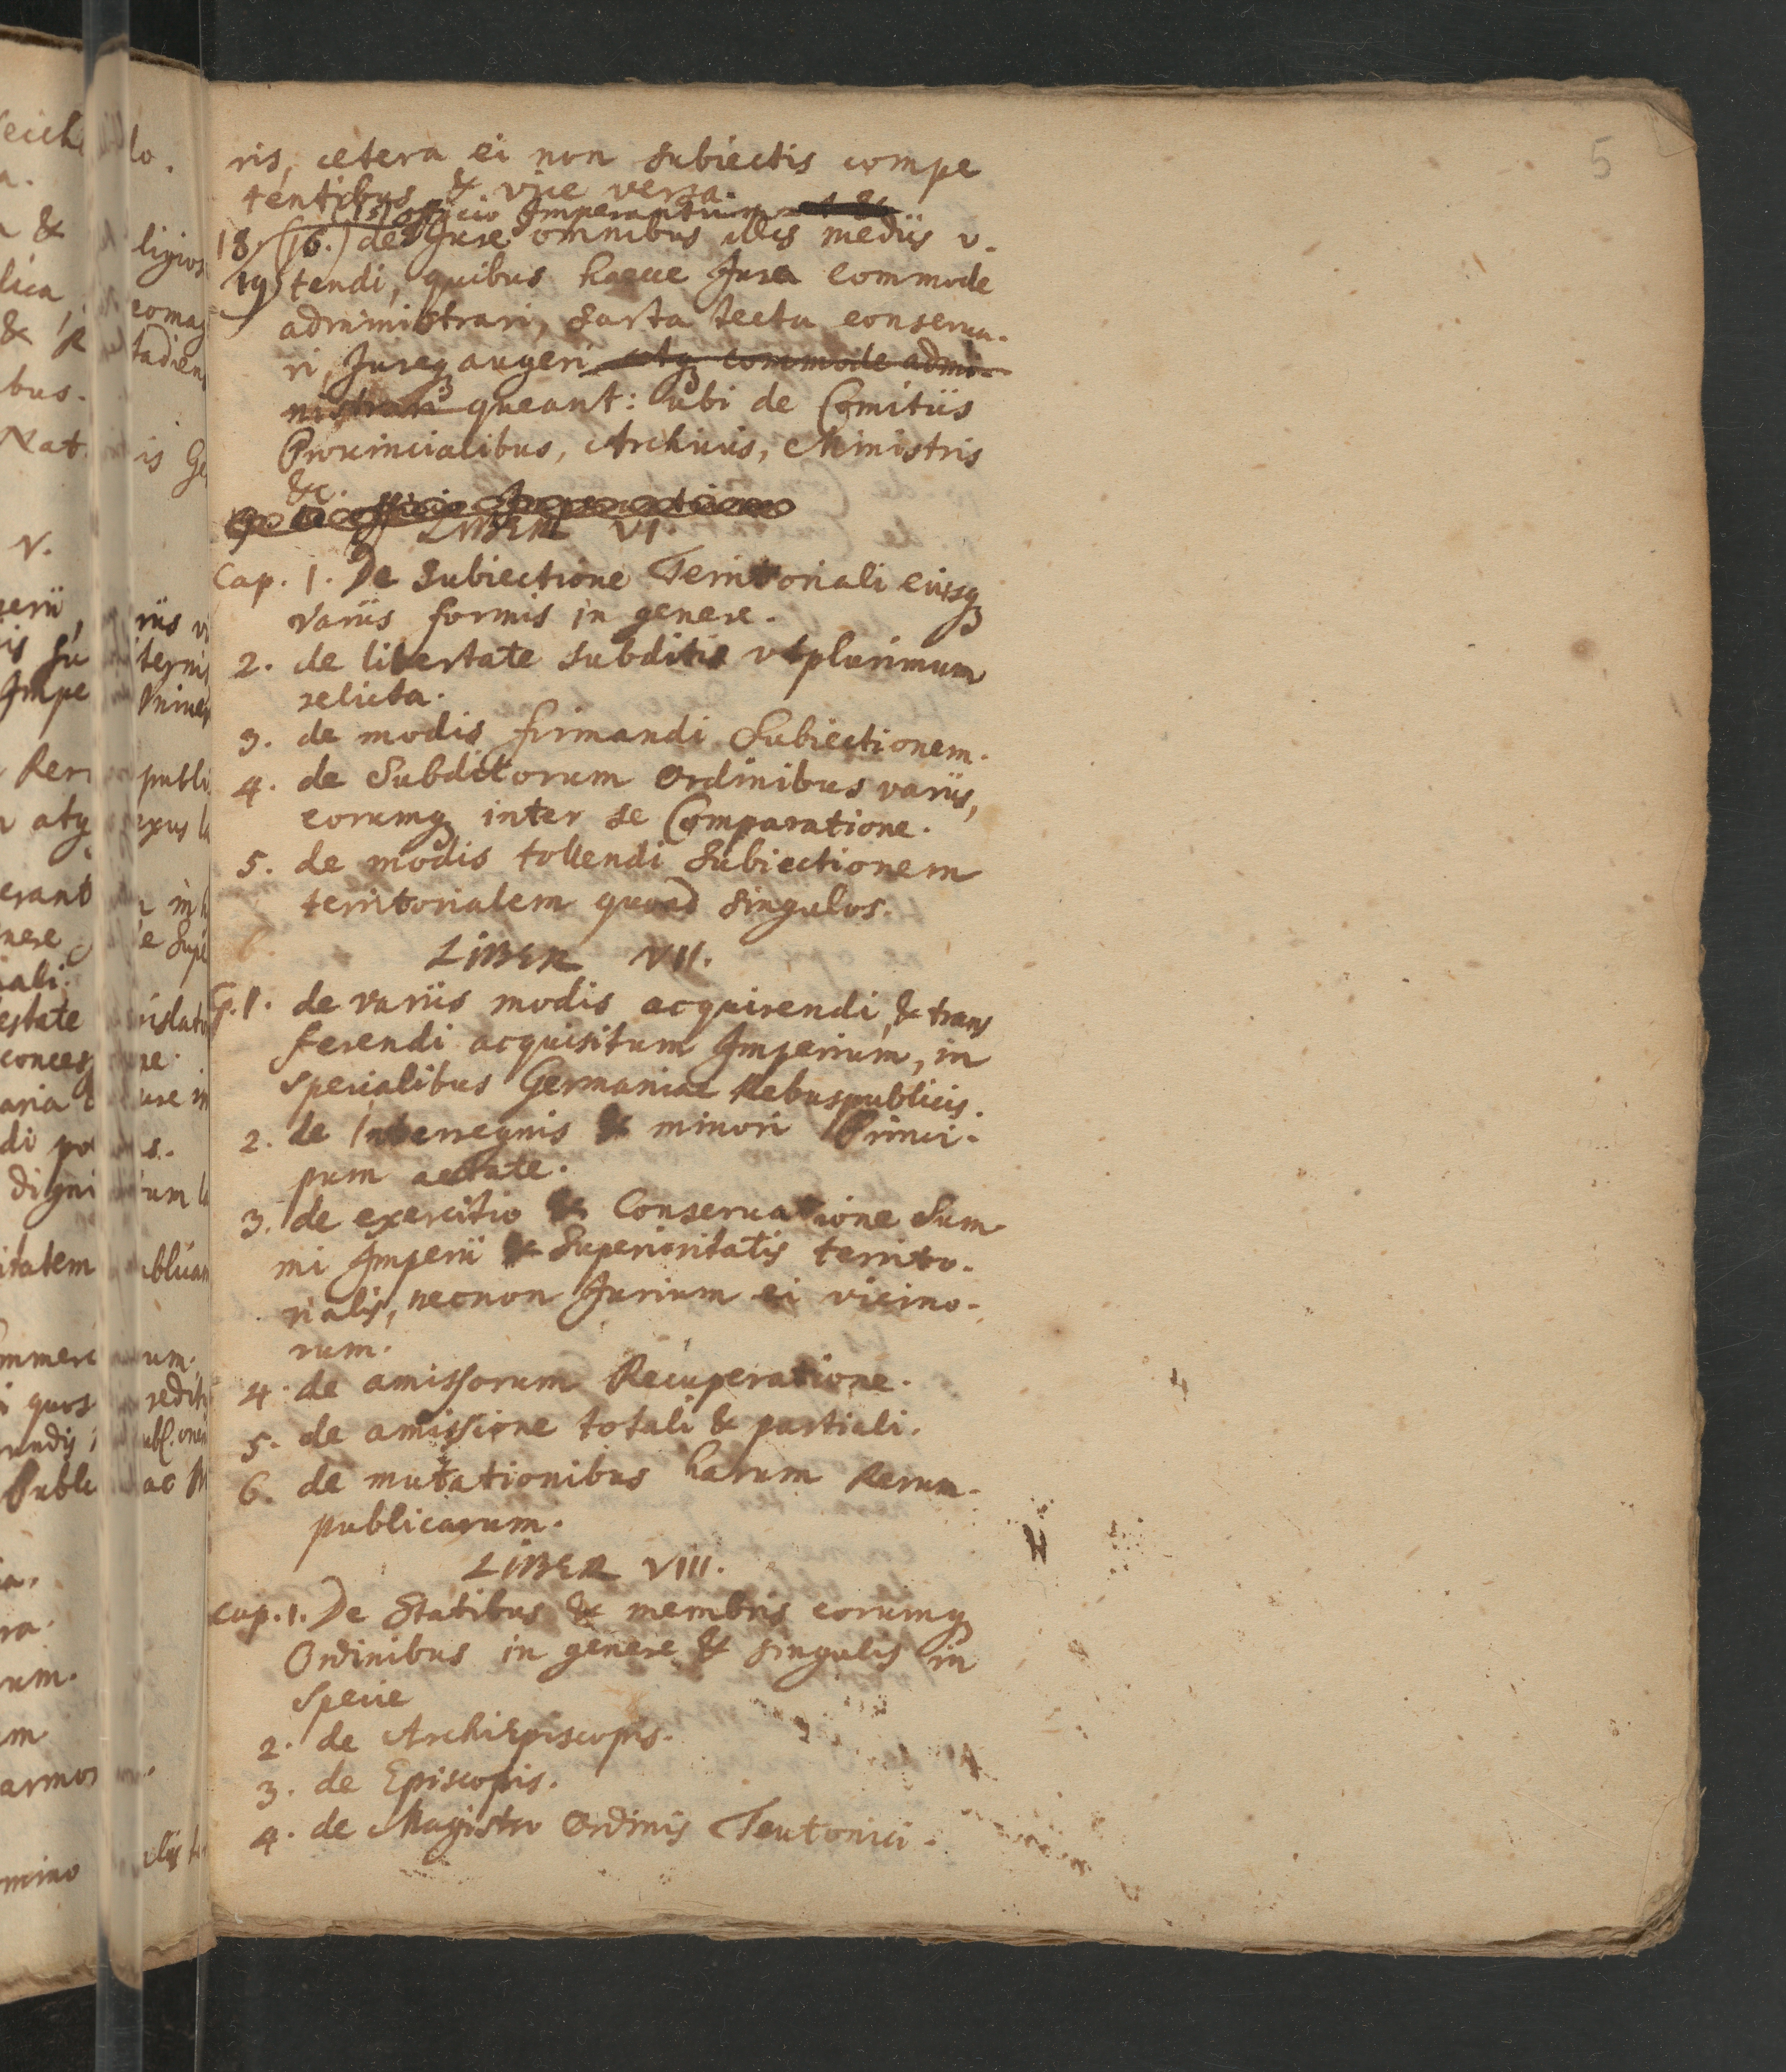 5
ris, cetera ei non subiectis compe
tentibus & vice versa.
(15) officio Imperantium
18. (16.) de Jure omnibus illis mediis v-
19) tendi, quibus haecce Jura commode
administrari, sarta tecta conserua-
ri, Jureq₃ augeri atq₃ commode admi-
nistrari queant: ubi de Comitiis
Prouincialibus, Archivis, Ministris
&c.
officio Imperantium
LIBER VI.
Cap. 1. De Subiectione Territoriali eiusq₃
variis formis in genere.
2. de libertate subditis vtplurimum
relicta.
3. de modis firmandi Subiectionem.
4. de Subditorum Ordinibus variis,
eorumq₃ inter se Comparatione.
5. de modis tollendi Subiectionem
territorialem quoad singulos.
6.
LIBER VII.
C. 1. de variis modis acquirendi, & trans
ferendi acquisitum Imperium, in
specialibus Germaniae Rebuspublicis.
2. de Interregnis & minori Princi-
pum aetate.
3. de exercitio & Conseruatione Sum-
mi Imperii & Superioritatis territo-
rialis, necnon Jurium ei vicino-
rum.
4. de amissorum Recuperatione.
5. de amissione totali & partiali.
6. de mutationibus harum Rerum-
publicarum.
LIBER VIII.
Cap. 1. De Statibus & membris eorumq₃
Ordinibus in genere & singulis in
specie
2. de ArchiEpiscopis.
3. de Episcopis.
4. de Magistro Ordinis Teutonici.